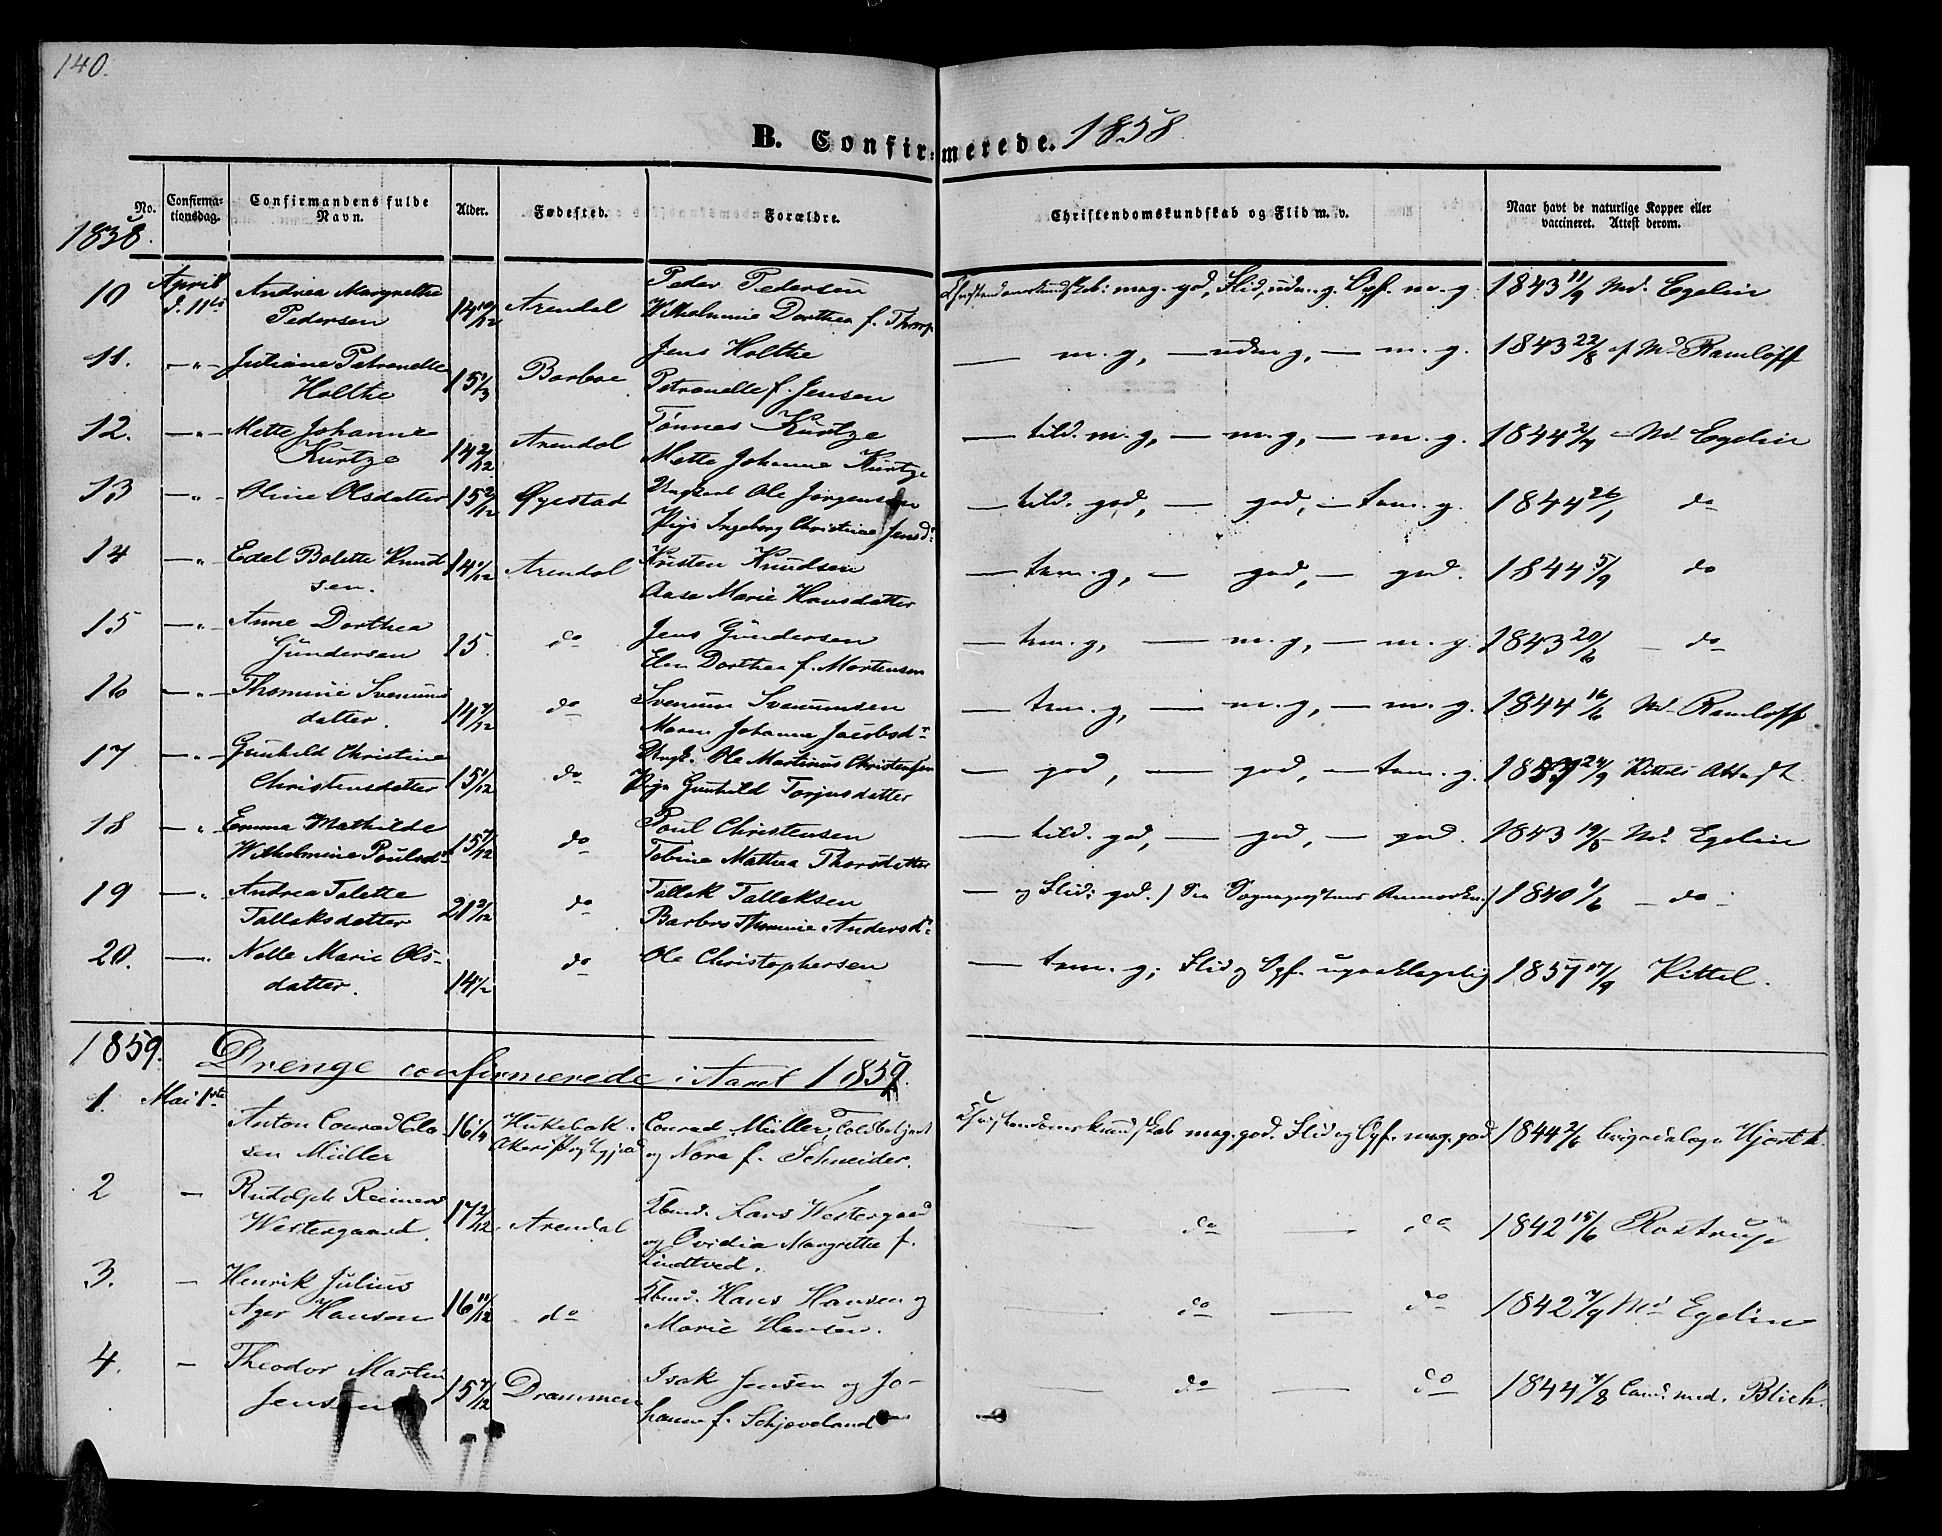 140.
B. Confirmerede. 1858
No. Confirmationsdag. Confirmandens fulde Navn. Alder. Fødested. Forældre. Christendomskundskab og Flid m. v. Naar havt de naturlige Kopper eller vaccineret. Attest derom.
1858.
10 April d. 11te Andrea Margrethe Pedersen 14 10/12 Arendal Peder Pedersen Wilhelmine Dorthea f. Thorp Christendomskundskab: meg. god, Flid, udm. g. Opf. m. g. 1843 11/9 Md. Egelin
11. -"- Juliane Petronelle Holthe 15 1/3 Barboe Jens Holthe Petronelle f. Jensen — m. g, — udm g, — m. g. 1843 22/8 Md Ramløff
12. -"- Mette Johanne Kürtze 14 2/12 Arendal Tønnes Kürtze Mette Johanne Kürtze — tild. m. g, — m. g, — m. g. 1844 2/7 Md Egelin
13 -"- Oline Olsdatter 15 2/12 Øyestad Ungkarl Ole Jørgensen Pige Ingeborg Christine Jensdr — tild. god, — god, — tem. g. 1844 26/1 do
14 -"- Edel Bolette Knudsen. 14 1/12 Arendal Kristen Knudsen Aase Marie Hansdatter — tem. g, — god, — god. 1844 5/9 do
15 -"- Anne Dorthea Gundersen 15. do Jens Gundersen Elen Dorthea f. Mortensen — tem. g, — m. g, — m. g. 1843 20/6 — do
16 -"- Thomine Svenumsdatter. 14 7/12 do Svenum Svenumsen Maren Johanne Jacobsdr — tem. g, — m. g, — m. g. 1844 16/6 Md. Ramløff.
17 -"- Gunhild Christine Christensdatter 15 1/12 do Ungk. Ole Martinus Christensen Pige Gunhild Torjusdatter — god, — god, — tem. g. 1857 24/9 Kittels Attest
18 -"- Emma Mathilde Wilhelmine Poulsdr 15 7/12 do Poul Christensen Tobine Mathea Thorsdatter — tild. god, — god, — god. 1843 19/8 Md. Egelin
19 -"- Andrea Talette Tallaksdatter 21 2/12 do Tallak Tallaksen Barbro Thomine Andersdr — og Flid: god.) Se Sognepræstens Anmærkn.) 1840 1/6 — do -
20. -"- Nelle Marie Olsdatter. 14 1/2 do Ole Christophersen — tem. g; Flid og Opf. upaaklagelig 1857 17/9 Kittel.
1859. Drenge confirmerede i Aaret 1859.
1. Mai 1ste Anton Conrad Clasen Müller 16 1/4 Conrad Müller, og Nora f. Schneider. Christendomskundskab meg. god. Flid og Opf. meg. god 1844 2/6 Brigadelæge Hjorth.
2 — Rudolph Reimers Westergaard. 17 2/12 Arendal Kbmd. Lars Westergaard og Ovidia Margrethe f. Lindtved. — do — do 1842 15/6 Rostrup
3. — Henrik Julius Ager Hansen 16 11/12 do Kbmd. Hans Hansen og Marie Hansen. — do — do 1842 7/9 Md Egelin
4. — Theodor Martin Jensen 15 7/12 Drammen Isak Jensen og Johanne f. Schjøveland — do — do 1844 7/8 Cand. med. Blich.